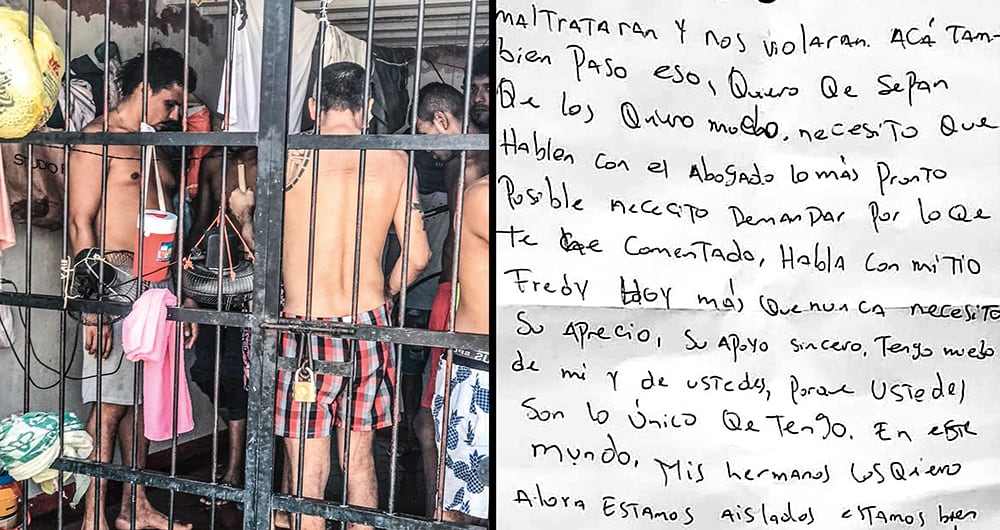 maltrataran y nos violaran. Acá tam-
bien paso eso, Quiero Qe sepan
Qe los Quiero mucho. necesito Que
Hablen con el Abogado lo más pronto
Posible nececito Demandar por lo Qe
te he comentado, Habla con mi Tio
Fredy Hoy más Que nunca necesito
Su Aprecio, Su Apoyo sincero. Tengo miedo
de mi y de ustedes, porque Ustedes
Son lo único Qe Tengo. En este
mundo. Mis hermanos los Quiero
Ahora Estamos Aislados estamos bien